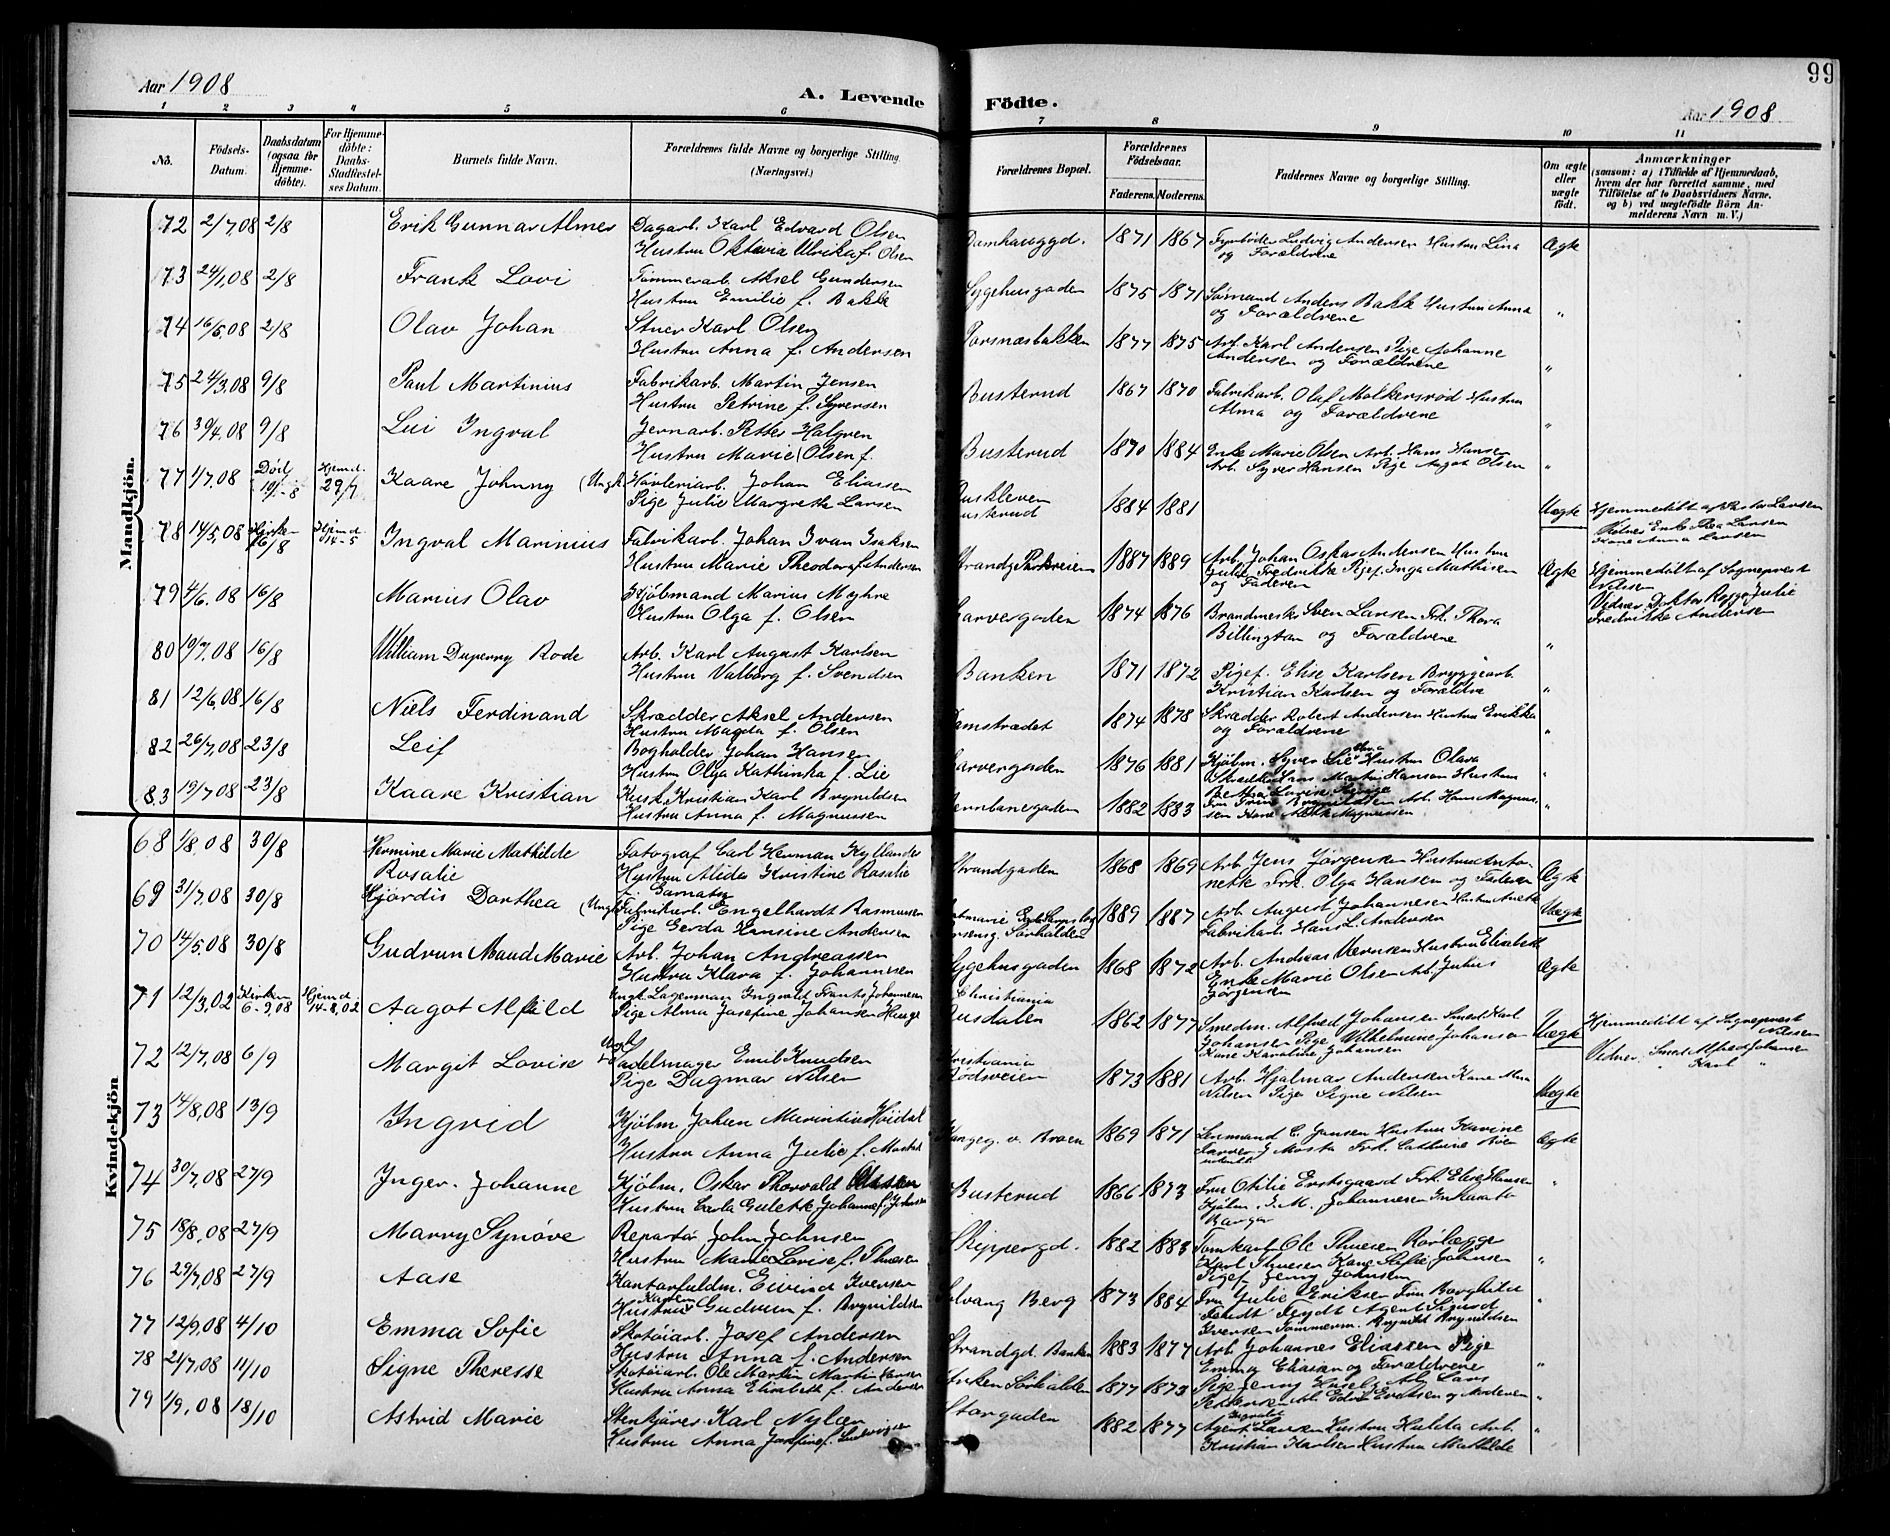 99
Aar 1908
A. Levende Födte.
Aar 1908
1 2 3 4 5 6 7 8 9 10 11
No.
Födsels-Datum.
Daabsdatum (ogsaa for Hjemme-döbte).
For Hjemme-döbte: Daabs-Stadfæstel-ses Datum.
Barnets fulde Navn.
Forældrenes fulde Navne og borgerlige Stilling. (Næringsvei.)
Forældrenes Bopæl.
Forældrenes Födselsaar.
Faderens. Moderens.
Faddernes Navne og borgerlige Stilling.
Om ægte eller uægte födt.
Anmærkninger
(saasom: a) i Tilfælde af Hjemmedaab,
hvem der har forrettet samme, med
Tilföielse af to Daabsvidners Navne.
og b) ved uægtefödte Börn An-
melderens Navn m. V.)
Mandkjön.
72 2/7,08 2/8 Erik Gunnar Almer Dagarb. Karl Edvard Olsen Damhauggd. 1871 1867 Fyrbøder Ludvig Andersen Hustru Lina Ægte
Hustru Oktavia Ulrika f. Olsen og Forældrene
73 24/1,08 2/8 Frank Lovi Tømmerarb. Aksel Gundersen Sygehusgaden 1875 1871 Sømand Anders Bakk Hustru Anna "
Hustru Emilie f. Bakke og Forældrene
74 16/5,08 2/8 Olav Johan Stuer Karl Olsen 1877 1875 Arb. Karl Andersen Pige Johanne "
Hustru Anna f. Andersen Andersen og Forældrene
75 24/3,08 9/8 Paul Martinius Fabrikarb. Martin Jensen Busterud 1867 1870 Fabrikarb. Olaf Molkersrød Hustru "
Hustru Petrine f. Syversen Alma og Forældrene
76 30/4,08 9/8 Lui Ingval Jernarb. Petter Halgren Busterud 1870 1884 Enke Marie Olsen Arb. Hans Hansen "
Hustru Marie Olsen f. Arb. Syver Hansen Pige Aagot Olsen
77 1/7,08 Død Hjemd. 29/7 Kaare Johnny (Ungk. Høvleriarb. Johan Eliassen 1884 1881 Uægte Hjemmedøbt af Pastor Larsen
Pige Julie Margrethe Larsen Busterud Enke Thea Larsen
Kone Anna Larsen
78 14/5,08 Kirke 16/8 Hjemd. 14-5 Ingval Marinius Fabrikarb. Johan Ivan Isaksen 1887 1889 Arb. Johan Oskar Andersen Hustru Ægte Hjemmedøbt af Sogneprest
Hustru Marie Theodora f. Andersen Julie Fredrikke Pigef. Inga Mathisen Nilsen
og Faderen Vidner: Doktor Julie
Fredrikke Andersen
79 4/6.08 16/8 Marius Olav Kjøbmand Marius Myhre Garvergaden 1874 1876 Brandmester Sven Larsen Frk. Thora "
Hustru Olga f. Olsen Billington og Forældrene
80 19/7,08 16/8 William Duperry Rode Arb. Karl August Karlsen Banken 1871 1872 Pigef. Elise Karlsen Bryggearb. "
Hustru Valborg f. Svendsen Kristian Karlsen og Forældre
81 12/6,08 16/8 Niels Ferdinand Skrædder Aksel Andersen Damstrædet 1874 1878 Skrædder Robert Andersen Hustru Erikka "
Hustru Magda f. Olsen og Forældrene
82 26/7,08 23/8 Leif Bogholder Johan Hansen Garvergaden 1876 1881 Kjøbm. Syver Lie Hustru Olava "
Hustru Olga Kathinka f. Lie Martin Hansen Hustru
83 19/7,08 23/8 Kaare Kristian Kusk Kristian Karl Brynildsen Jernbanegaden 1882 1883 Arb. Hans Magnus- "
Hustru Anna f. Magnussen sen Kone Magnussen
Kvindekjön
68 1/8,08 30/8 Hermine Marie Mathilde Fotograf Carl Herman Kyllander Strandgaden 1868 1869 Arb. Jens Jørgensen Hustru Anto- Ægte
Rosalie Hustru Alida Kristine Rosalie nette Frk. Olga Hansen og Faderen
69 31/7,08 30/8 Hjørdis Dorthea (Ungk. Fabrikarb. Engelhardt Rasmussen 1889 1887 Arb. August Johannesen Hustru Uægte
Pige Gerda Hansine Andersen Sørhalden Fabrikarb. Hans L. Andersen
70 14/5.08 30/8 Gudrun Maud Marie Arb. Johan Andreassen Sygehusgaden 1868 1872 Arb. Andreas Hustru Elisabeth Ægte
Hustru Klara f. Johannesen Enke Marie Olsen Arb. Julius
Jørgensen
71 12/3,02 Kirken 6-9,08 Hjemd. 14-8,02 Aagot Alfild Ungk. Lagerman Ingvald Frants Johannesen Christiania 1862 1877 Smedm. Alfred Johansen Smed Karl Uægte Hjemmedøbt af Sogneprest
Pige Alma Josefine Johansen Busdalen Johansen Pige Wilhelmine Johansen Nilsen
Kone Karoline Johansen Vidner: Smed Alfred Johansen
" Karl "
72 12/7,08 6/9 Margit Lovise Ungk. Sadelmager Emil Knudsen Kristiania 1873 1881 Arb. Hjalmar Andersen Kone Uægte
Pige Dagmar Nilsen Rødsveien Nilsen Pige Signe Nilsen
73 14/8,08 13/9 Ingrid Kjøbm Johan Høidal 1869 1871 C. Jansen Hustru Karine Ægte
Hustru Anna Julie f. Farver J Mosta Frk. Cathrine
74 30/7,08 27/9 Inger Johanne Kjøbm. Oskar Thorvald Olsen Busterud 1866 1873 Fru Otilie Frk. Elise Hansen "
Hustru Carla Gulette Johanne f. Kjøbm. J. M. Johannesen
75 18/8,08 27/9 Marry Synøve Reparatør John Johnsen Skippergd. 1882 1883 Tomtkarl Ole Thuesen Rørlægge "
Hustru Marie Lovise f. Thuesen Karl Thuesen Kone Sofie Johnsen
Pigef. Jenny Johnsen
76 29/7,08 27/9 Aase Kontorfuldm. Eivind Iversen Solvang Berg 1873 1884 Fru Julie Eriksen Fru Borghild "
Hustru Gudrun f. Brynildsen Feydt Agent Sigurd
Iversen Tømmerm. Brynildsen
77 12/9,08 4/10 Emma Sofie Skotøiarb. Josef Andersen Strandgd. Banken 1883 1877 Arb. Johannes Eliassen Pige "
Hustru Anna f. Andersen Emma Eliassen og Forældrene
78 21/7,08 11/10 Signe Theresse Skotøiarb. Ole Martin Martin Hansen Sørhalden 1877 1873 Pige Jenny Arb. Lars "
Hustru Anna Elisabeth f. Andersen Pettersen Arb. Edvin Evensen og Moderen
79 1/9,08 18/10 Astrid Marie Stenkjører Karl Nylæn Storgaden 1882 1877 Agent Larsen Hustru Hulda Arb. "
Hustru Anna Josefine f. Ludvigsen Kristian Karlsen Hustru Mathilde